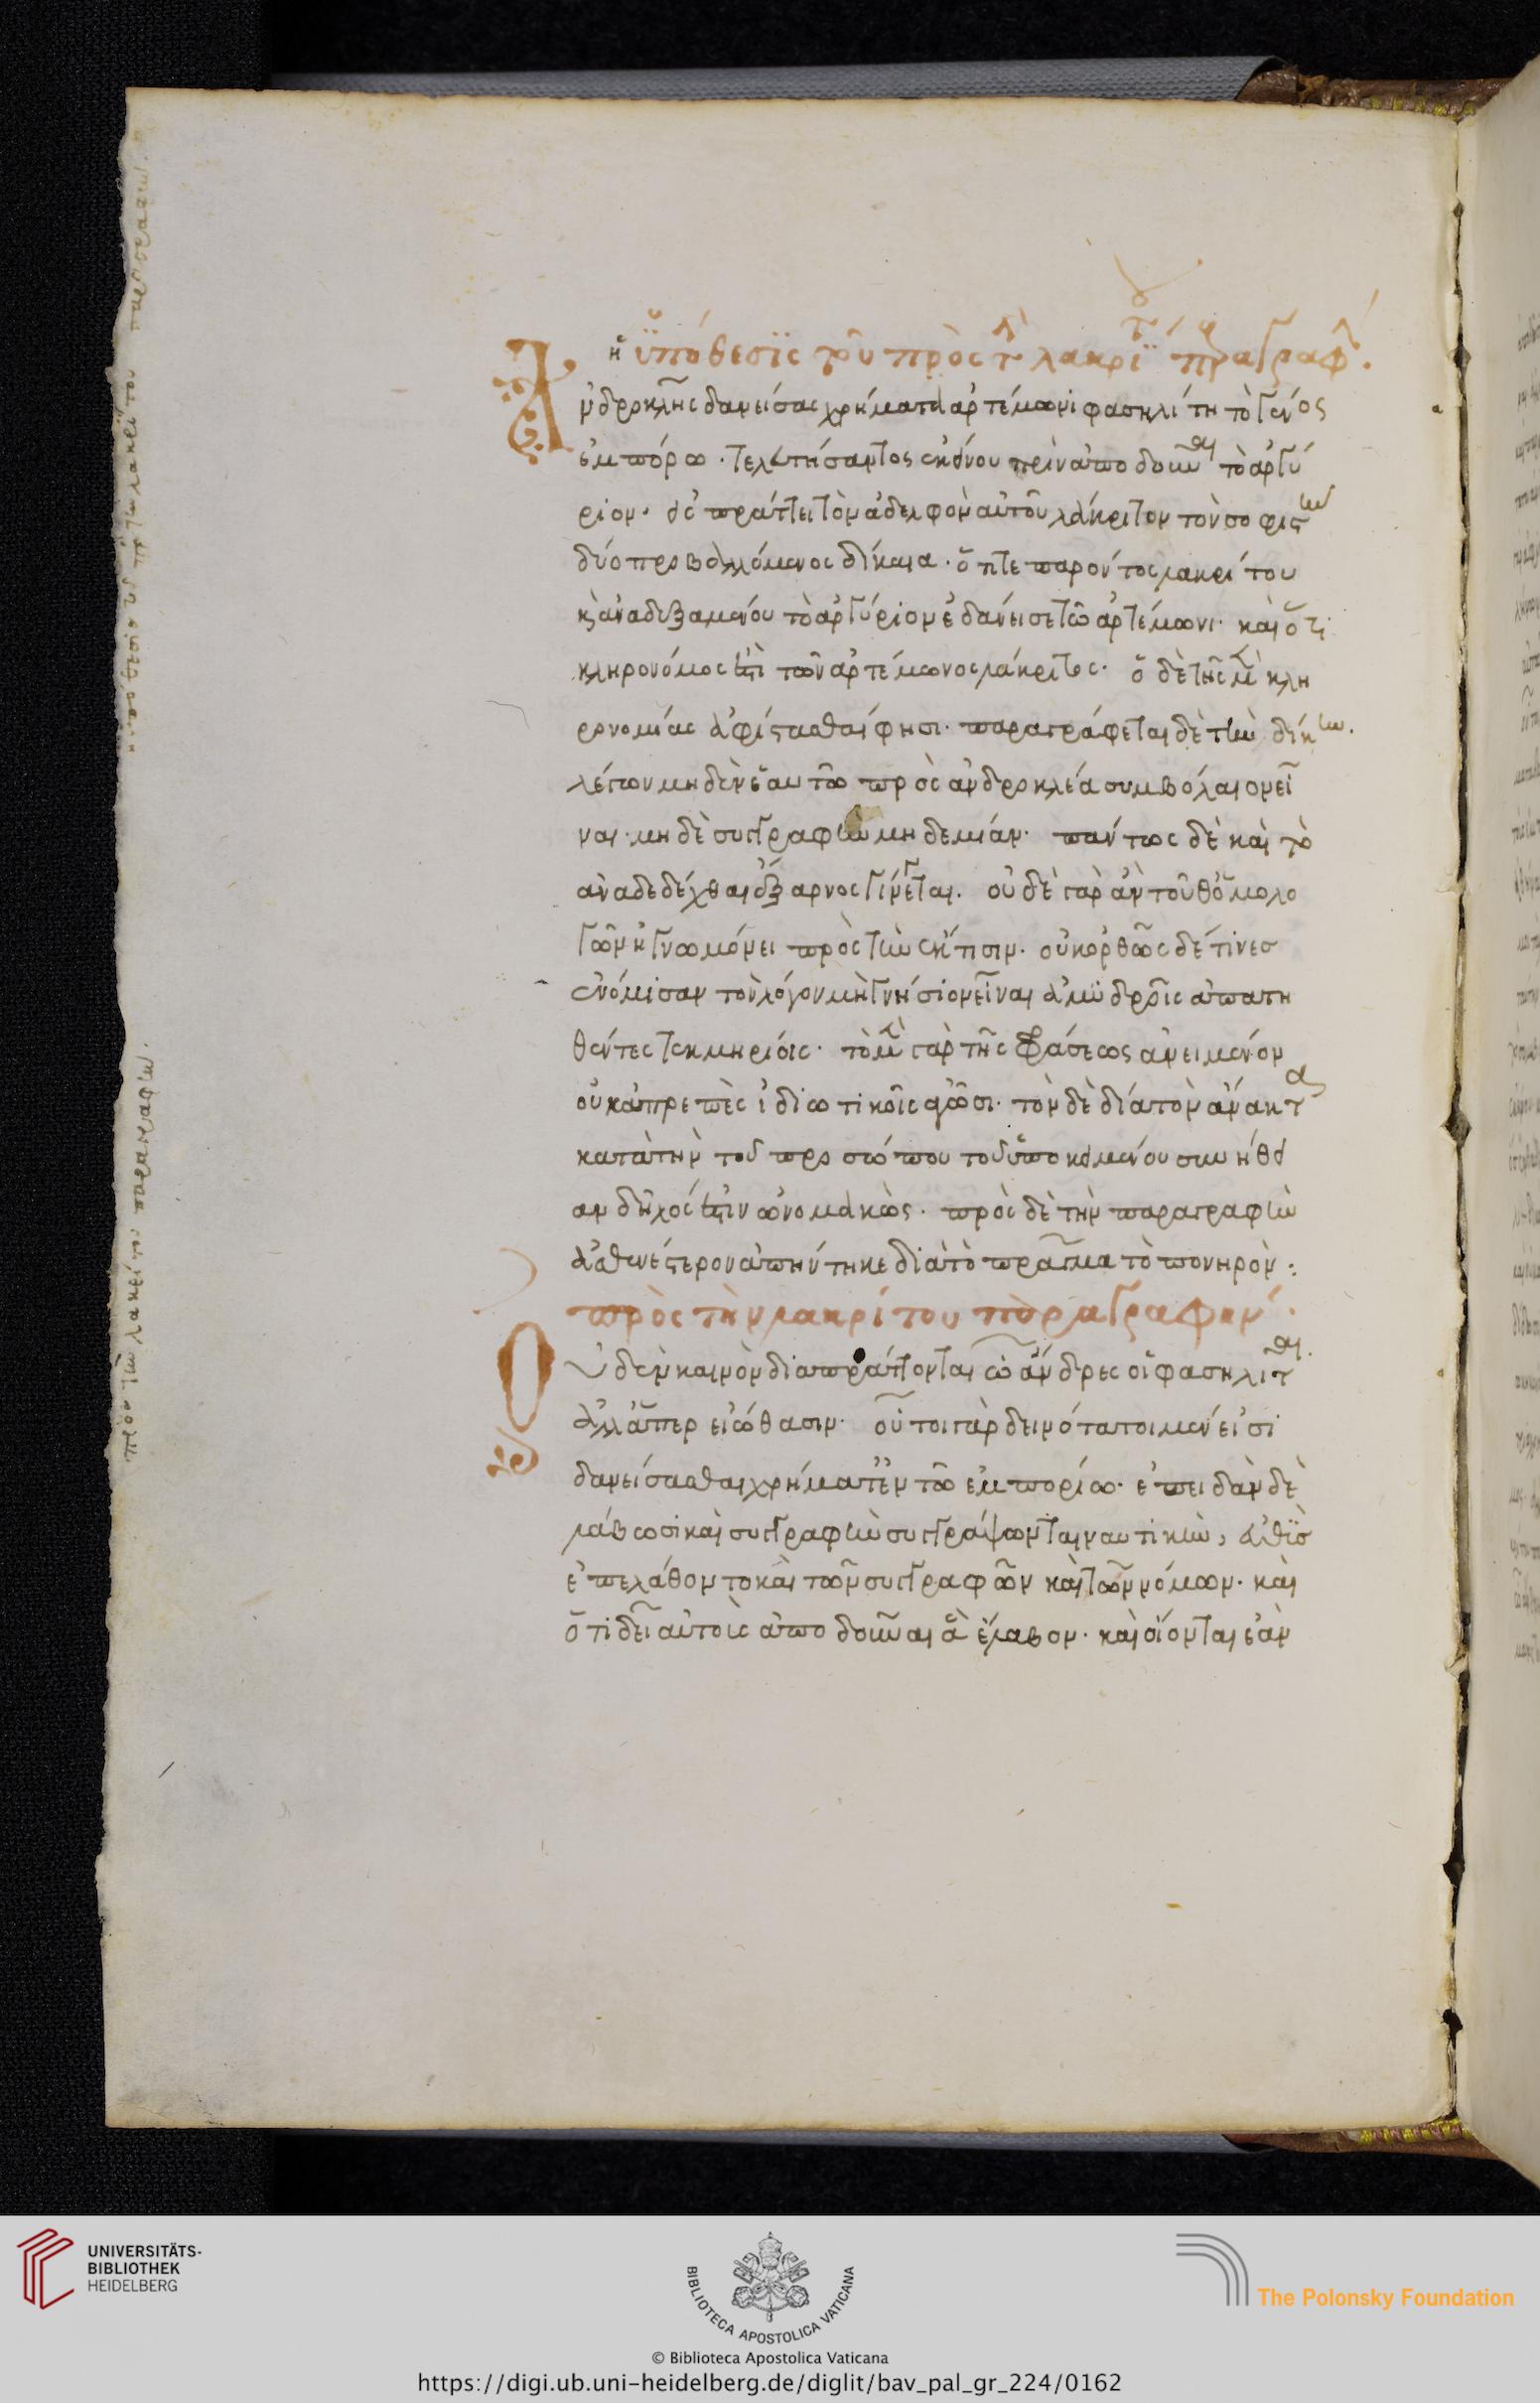 ἡ ὑπόθεσϊς τοῦ πρὸς τὴν λακρίτου παραγραφήν.
Ἀνδροκλῆς δανείσας χρήματα ἀρτέμωνι φασηλίτη τὸ γένος
ἐμπόρω· τελευτήσαντος ἐκείνου πρὶν ἀποδοῦναι τὸ ἀργύ
ριον· εἰσπράττει τὸν ἀδελφὸν αὐτοῦ λάκριτον τὸν σοφιστὴν
δύο προβαλλόμενος δίκαια· ὅτι τε παρόντος λακρίτου
κ ἀναδεξαμένου τὸ ἀργύριον ἐδάνεισε τῶ ἀρτέμωνι· καὶ ὅτι
κληρονόμος ἐστὶ τῶν ἀρτέμωνος λάκριτος· ὁ δὲ τῆς μὲν κλη
ρονομίας ἀφίστασθαι φησι· παραγράφεται δὲ τὴν δίκην.
λέγων μηδὲν ἑαυτῶ πρὸς ἀνδροκλέα συμβόλαιον εἶ
ναι· μηδὲ συγγραφὴν μηδεμίαν· πάντως δὲ καὶ τὸ
ἀναδεδέχθαι ἔξαρνος γίνεται. οὐδὲ γὰρ ἂν τοῦθ' ὁμολο
γῶν ἠγνωμόνει πρὸς τὴν ἔκτισιν· οὐκ ὀρθῶς δέ τινες
ἐνόμισαν τὸν λόγον μὴ γνήσιον εἶναι ἀμυδροῖς ἀπατη
θέντες τεκμηρίοις· τὸ μὲν γὰρ τῆς φράσεως ἀνειμένον
οὐκ ἀπρεπὲς ἰδιωτικοῖς ἀγῶσι· τὸν δὲ δία τὸν ἄνακτα
κατὰ τὴν τοῦ προσώπου τοῦ ὑποκειμένου συνήθει
αν δῆλός ἐστιν ὠνομακὼς· πρὸς δὲ τὴν παραγραφὴν
ἀσθενέστερον ἀπήντηκε διὰ τὸ πρᾶγμα τὸ πονηρόν:
πρὸς τὴν λακρίτου παραγραφήν.
Οὐδὲν καινὸν διαπράττονται ὦ ἄνδρες οἱ φασηλῖται.
ἀλλ' ἅπερ εἰώθασιν· οὗτοι γὰρ δεινότατοι μέν εἰσι
δανείσασθαι χρήματ' ἐν τῶ ἐμπορίω· ἐπειδὰν δὲ
λάβωσι καὶ συγγραφὴν συγγράψωνται ναυτικὴν, εὐθὺς
ἐπελάθοντο καὶ τῶν συγγραφῶν καὶ τῶν νόμων· καὶ
ὅτι δεῖ αὐτοὺς ἀποδοῦναι ἃ ἔλαβον· καὶ οἴονται ἐὰν
UNIVERSITÄTS-
BIBLIOTHEK
HEIDELBERG
BIBLIOTECA APOSTOLICA VATICANA
© Biblioteca Apostolica Vaticana
The Polonsky Foundation
https://digi.ub.uni-heidelberg.de/diglit/bav_pal_gr_224/0162